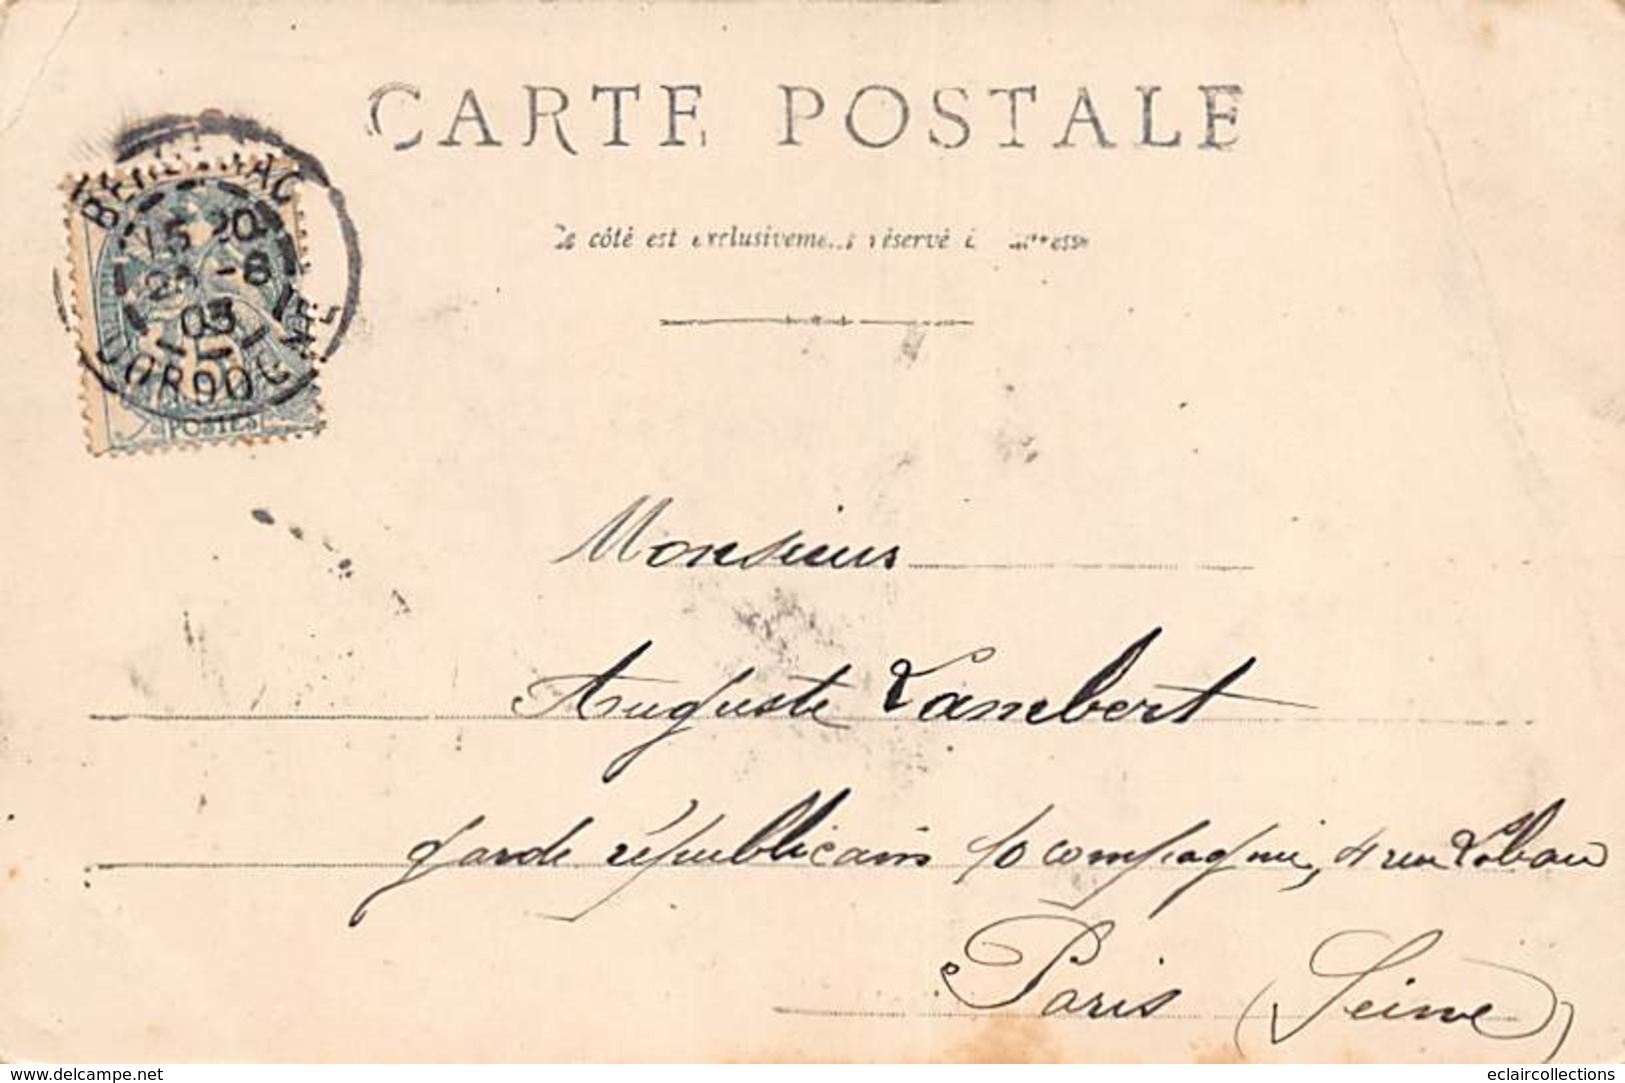 CARTE POSTALE
Ce côté est exclusivement réservé à l'adresse
BERGERAC
15 20
-8
03
DORDOGNE
POSTES
Monsieur
Auguste Lambert
garde républicain 10 compagnie, 4 rue Lobau
Paris (Seine)
delcampe.net
eclaircollections